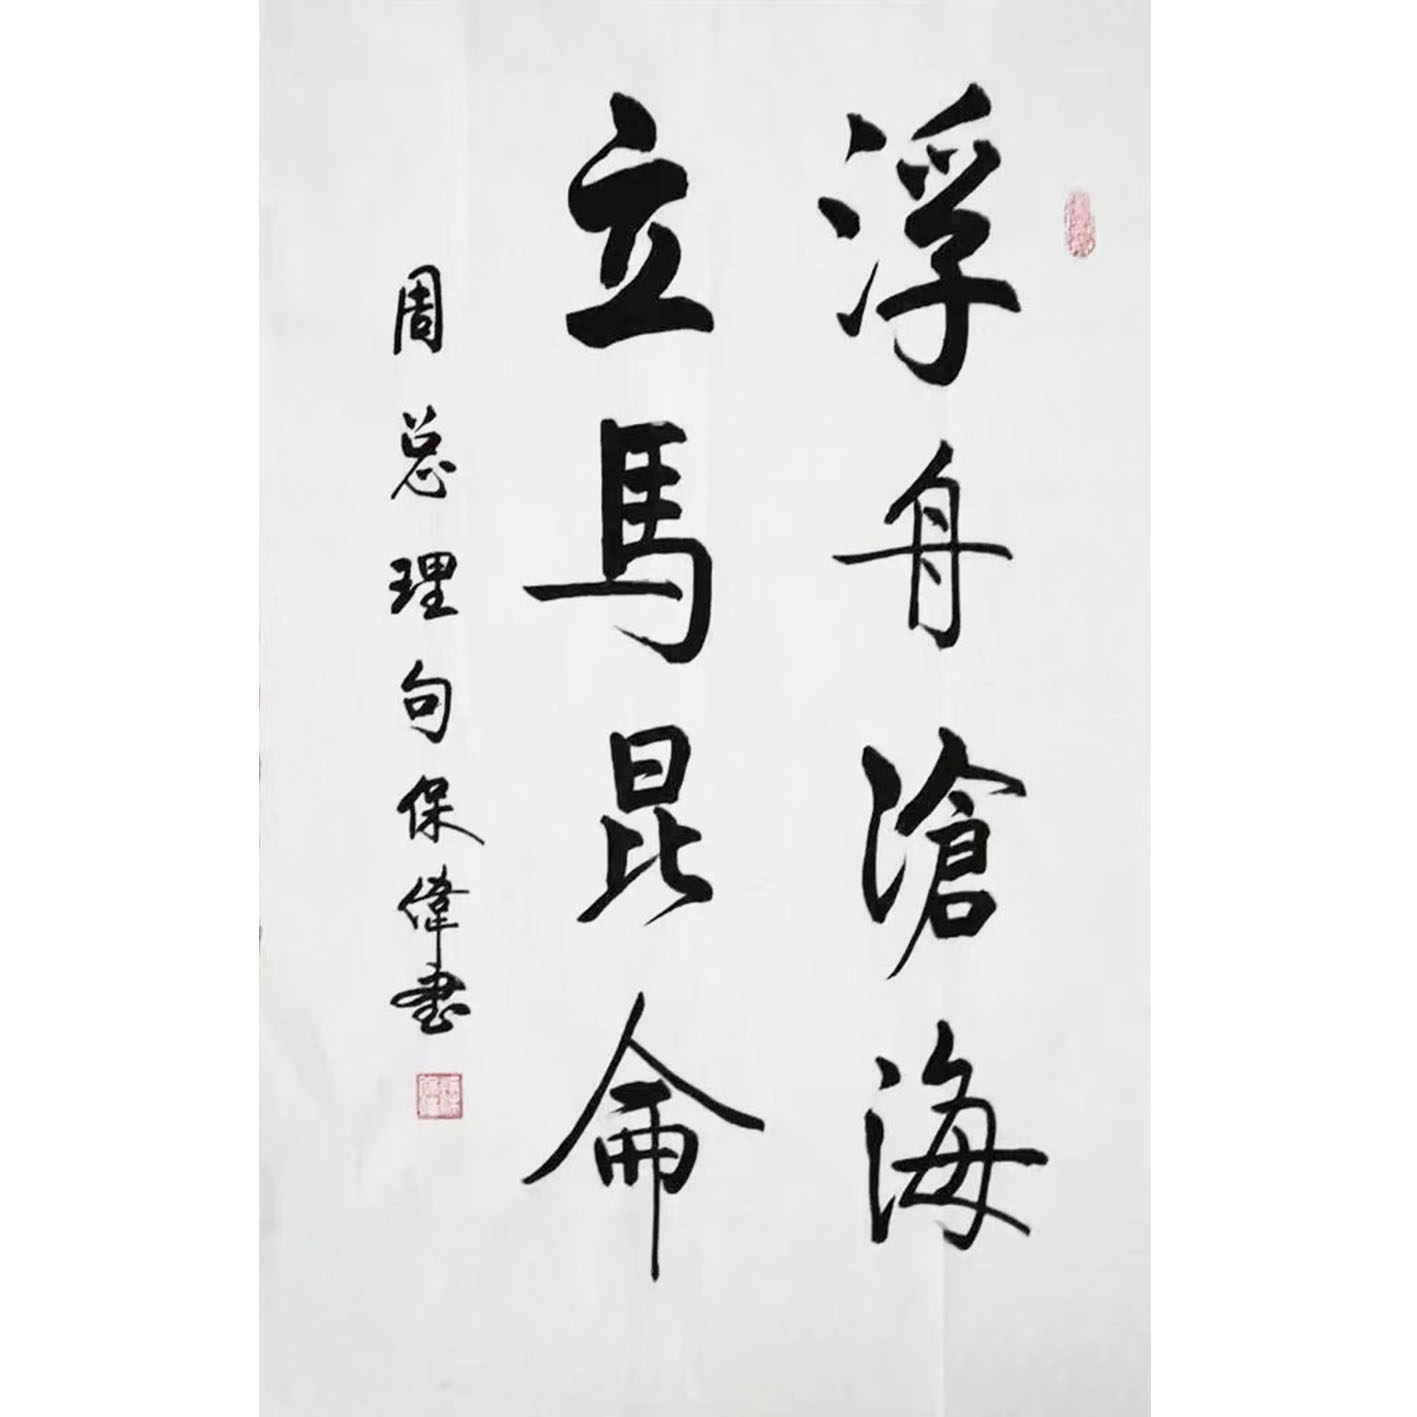 浮舟滄海
立馬昆侖
周总理句保偉書